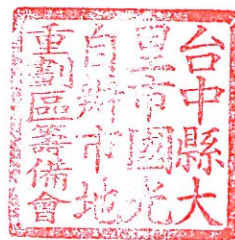 台中縣大
里市國光
自辦市地
重劃區籌備會